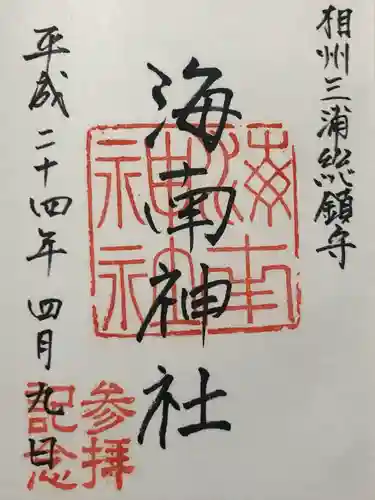 相州三浦総鎮守
海南神社
平成二十四年四月九日
海南神社
参拝記念